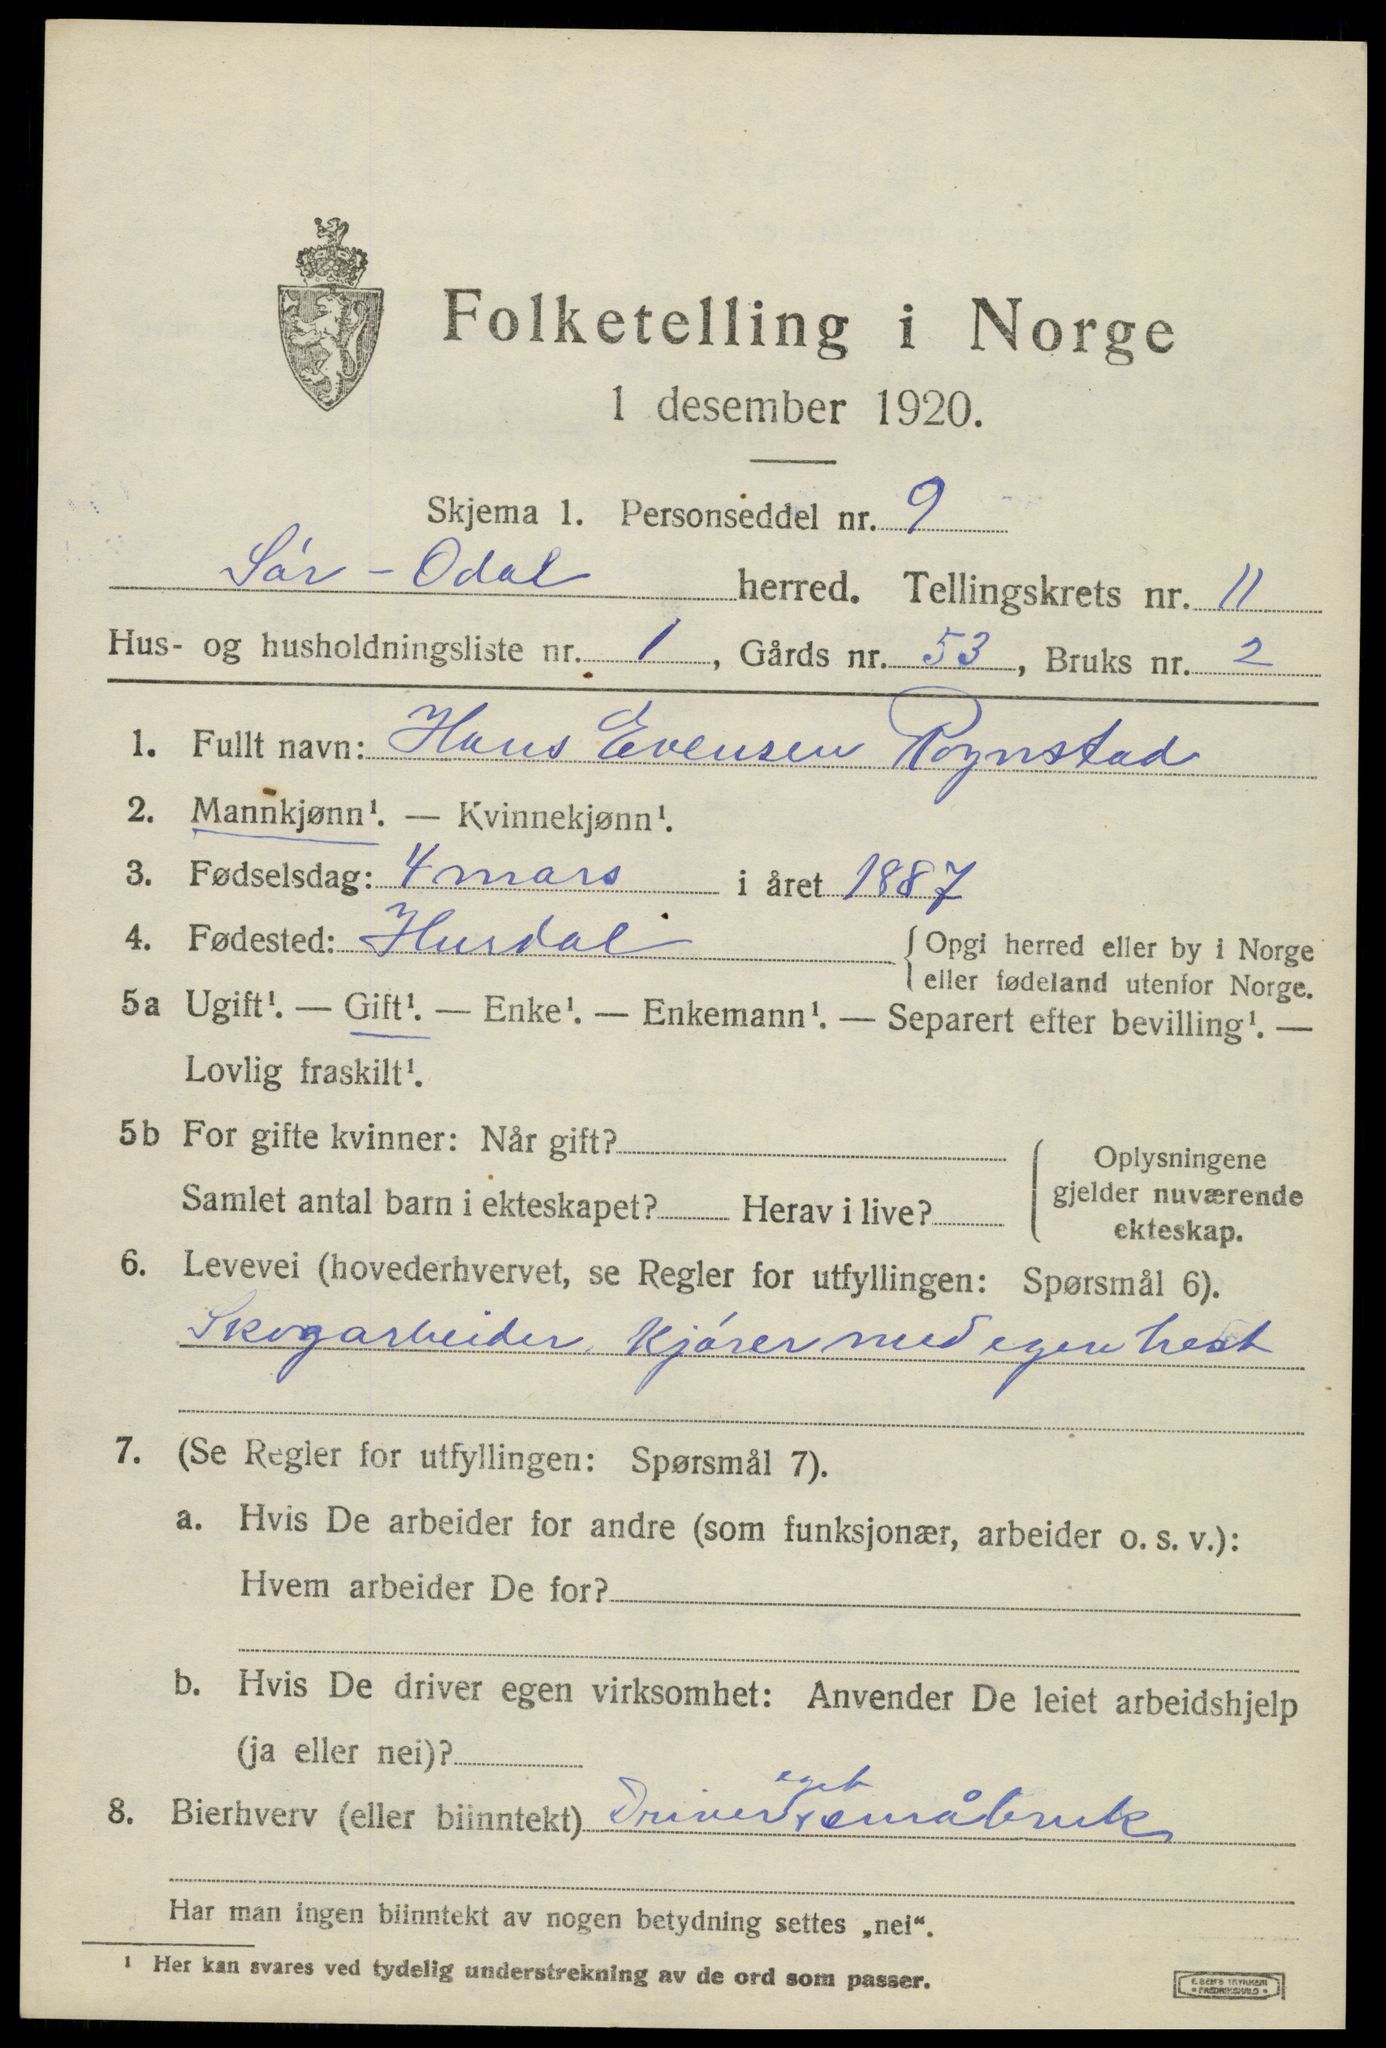 Folketelling i Norge
1 desember 1920.
Skjema 1. Personseddel nr. 9
Sór - Odal herred. Tellingskrets nr. 11
Hus- og husholdningsliste nr. 1, Gårds nr. 53, Bruks nr. 2
1. Fullt navn: Hans Evensen Rognstad
2. Mannkjønn¹. — Kvinnekjønn¹.
3. Fødselsdag: 4 mars i året 1887
4. Fødested: Hurdal { Opgi herred eller by i Norge
eller fødeland utenfor Norge.
5a Ugift¹. — Gift¹. — Enke¹. — Enkemann¹. — Separert efter bevilling¹. —
Lovlig fraskilt¹.
5b For gifte kvinner: Når gift?
Samlet antal barn i ekteskapet? Herav i live?
Oplysningene
gjelder nuværende
ekteskap.
6. Levevei (hovederhvervet, se Regler for utfyllingen: Spørsmål 6).
Skogarbeider, Kjórer med egen hest
7. (Se Regler for utfyllingen: Spørsmål 7).
a. Hvis De arbeider for andre (som funksjonær, arbeider o. s. v.):
Hvem arbeider De for?
b. Hvis De driver egen virksomhet: Anvender De leiet arbeidshjelp
(ja eller nei)?
eget
8. Bierhverv (eller biinntekt) Driver småbruk
Har man ingen biinntekt av nogen betydning settes „nei“.
¹ Her kan svares ved tydelig understrekning av de ord som passer.
E. SEM'S TRYKKERI
* FREDRIKSHALD *